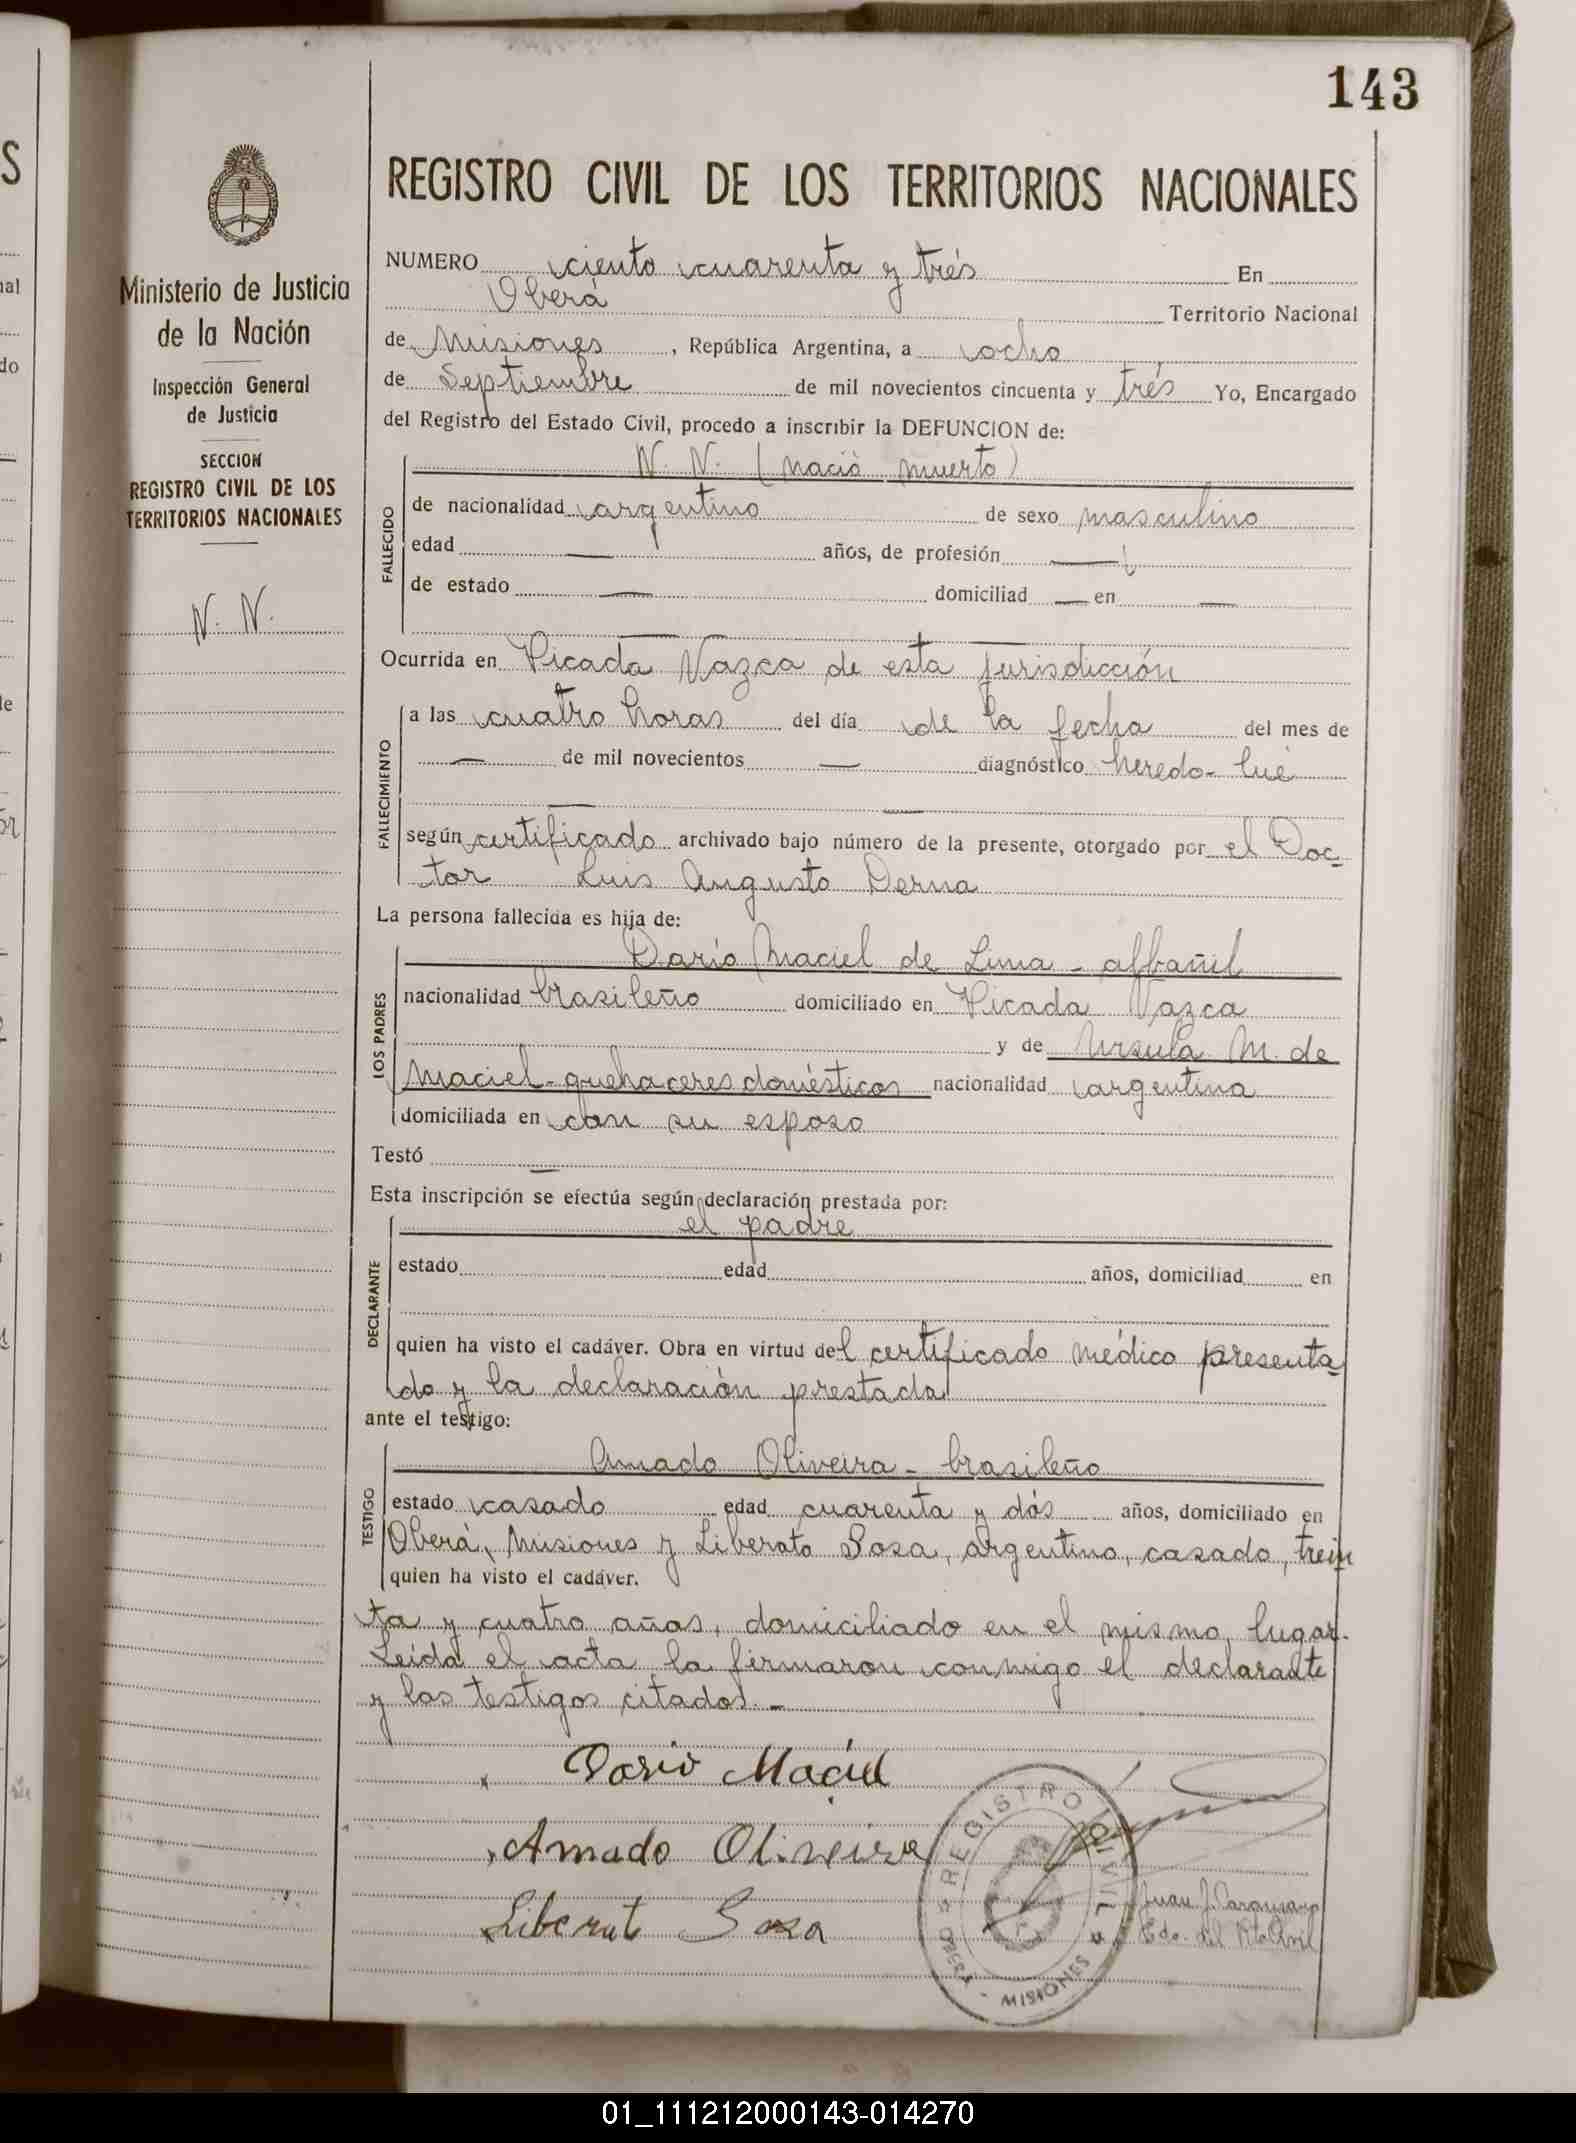 143
Ministerio de Justicia
de la Nación
Inspección General
de Justicia
SECCION
REGISTRO CIVIL DE LOS
TERRITORIOS NACIONALES
N. N.
REGISTRO CIVIL DE LOS TERRITORIOS NACIONALES
NUMERO ciento cuarenta y trés En
Oberá Territorio Nacional
de Misiones, República Argentina, a ocho
de Septiembre de mil novecientos cincuenta y trés Yo, Encargado
del Registro del Estado Civil, procedo a inscribir la DEFUNCION de:
N. N. (nació muerto)
FALLECIDO
de nacionalidad argentino de sexo masculino
edad — años, de profesión —
de estado — domiciliad — en —
Ocurrida en Picada Vazca de esta jurisdicción
FALLECIMIENTO
a las cuatro horas del día de la fecha del mes de
— de mil novecientos — diagnóstico heredo-lué
— —
según certificado archivado bajo número de la presente, otorgado por el Doc-
tor Luis Augusto Derna
La persona fallecida es hija de:
LOS PADRES
Darío Maciel de Lima - albañil
nacionalidad brasileño domiciliado en Picada Vazca
y de Ursula M. de
Maciel - quehaceres domésticos nacionalidad argentina
domiciliada en con su esposo
Testó —
Esta inscripción se efectúa según declaración prestada por:
DECLARANTE
el padre
estado edad años, domiciliad en
quien ha visto el cadáver. Obra en virtud del certificado médico presenta-
do y la declaración prestada
ante el testigo:
TESTIGO
Amado Oliveira - brasileño
estado casado edad cuarenta y dós años, domiciliado en
Oberá, Misiones y Liberato Sosa, argentino, casado, trein
quien ha visto el cadáver.
ta y cuatro años, domiciliado en el mismo lugar.
Leída el acta la firmaron conmigo el declarante
y los testigos citados. -
Dario Maciel
Amado Oliveira
Liberato Sosa
REGISTRO CIVIL
MISIONES
Juan J.
Edo. del Rto Civil
01_111212000143-014270